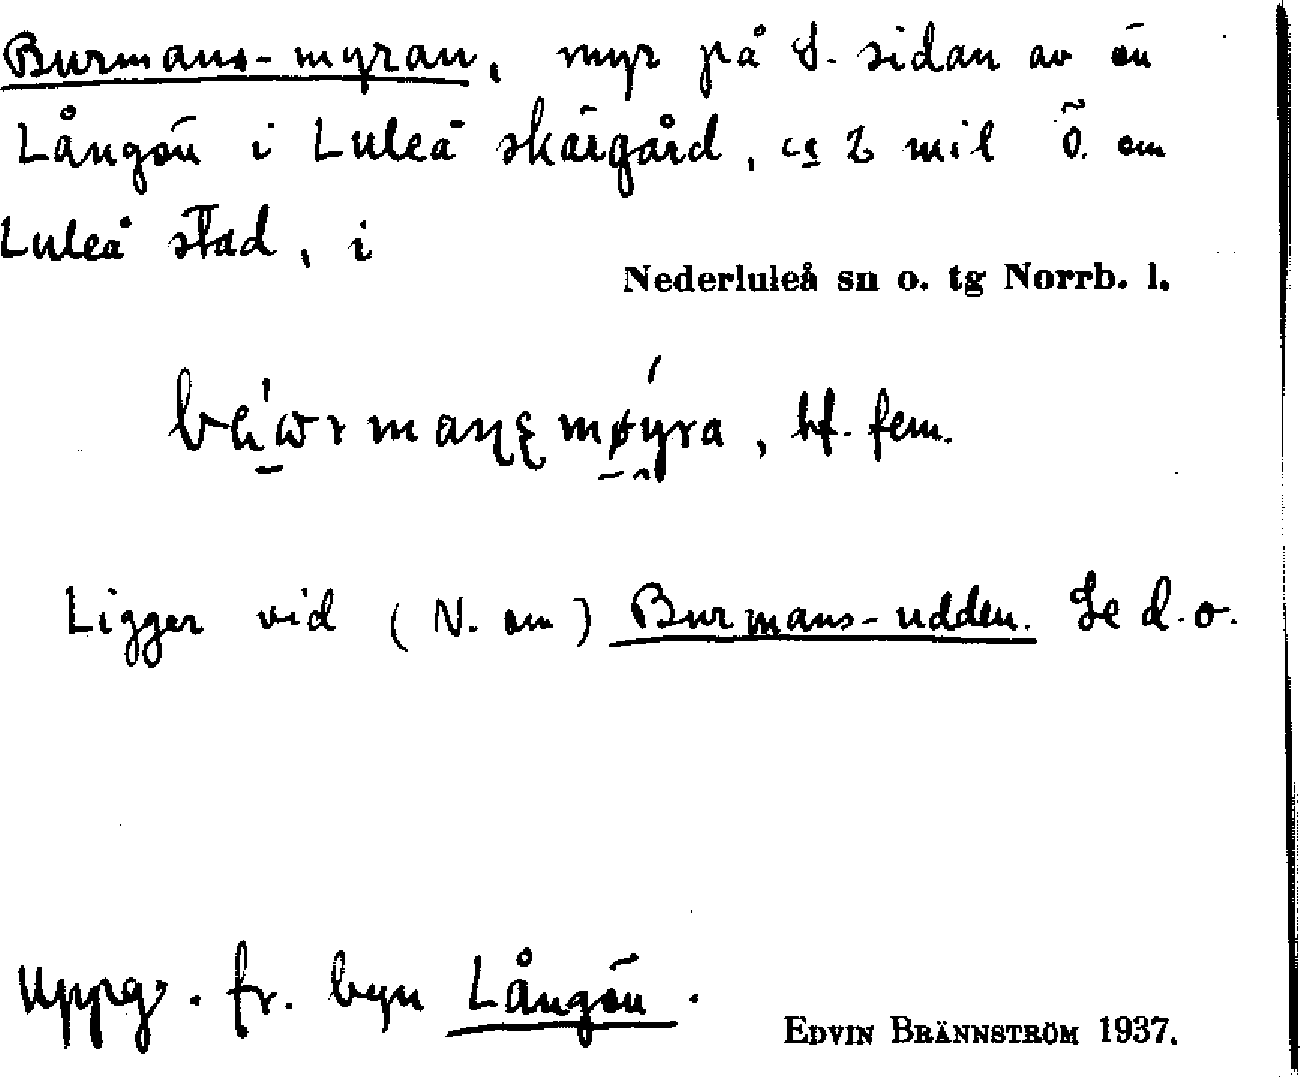 Burmans-myran, myr på S. sidan av ön
Långön i Luleå skärgård, ca 2 mil Ö. om
Luleå stad, i
Nederluleå sn o. tg Norrb. l.
bf. fem.
Ligger vid (N. om) Burmans-udden. Se d.o.
Uppg. fr. byn Långön.
EDVIN BRÄNNSTRÖM 1937.